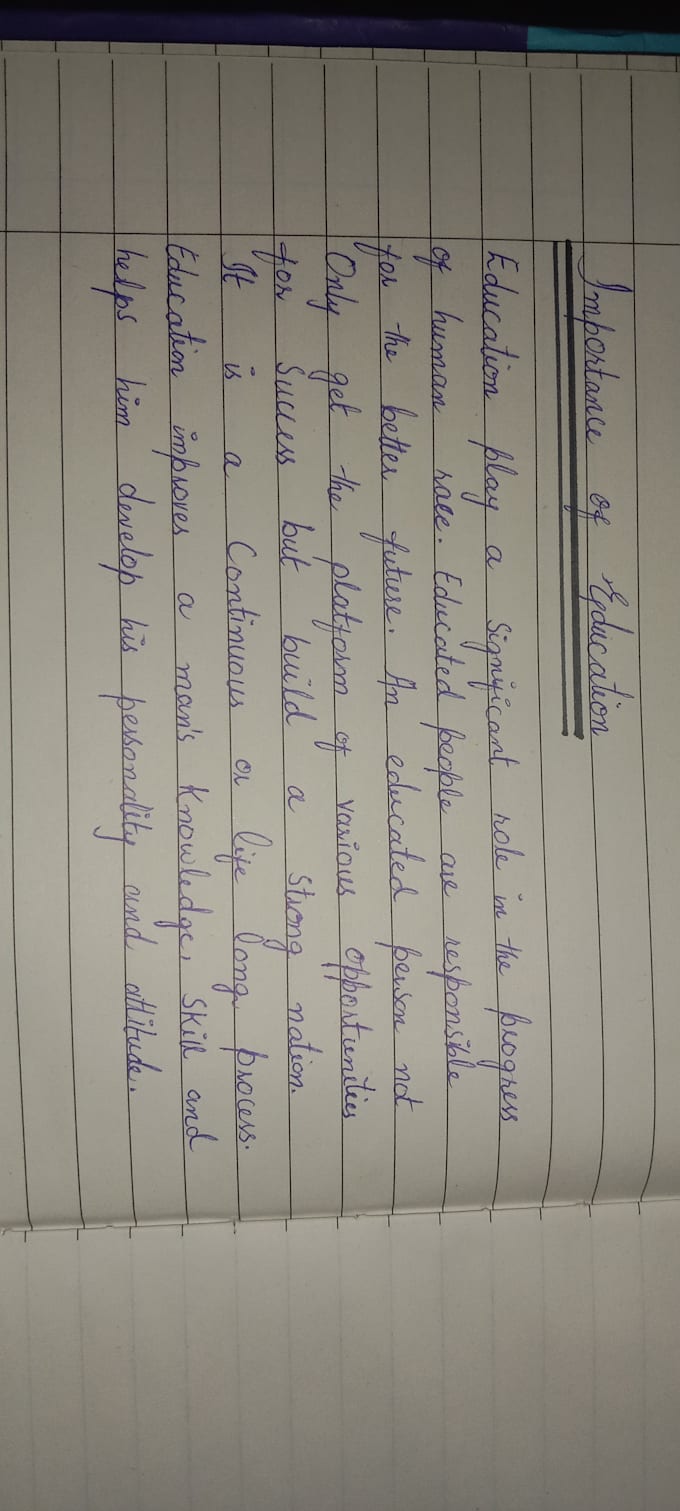 Importance of Education
Education play a significant role in the progress
of human race. Educated people are responsible
for the better future. An educated person not
Only get the platform of various opportunities
for Success but build a strong nation.
It is a Continuous or life long process.
Education improves a man's knowledge, skill and
helps him develop his personality and attitude.